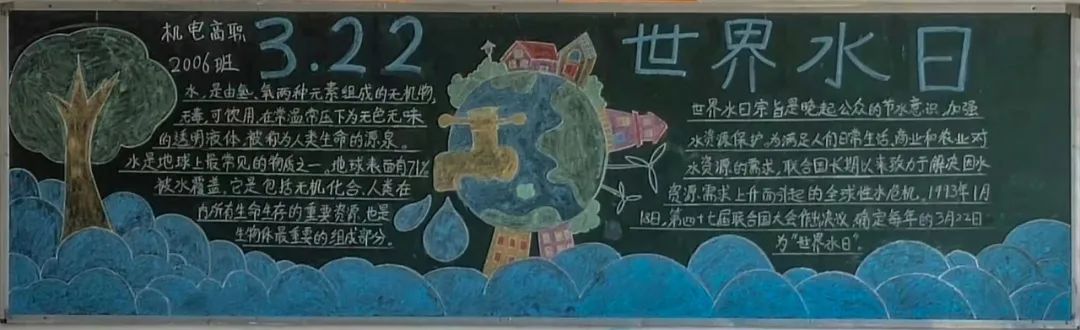 机电高职
2006班
3.22
世界水日
水,是由氢、氧两种元素组成的无机物,
无毒,可饮用,在常温常压下为无色无味
的透明液体,被称为人类生命的源泉。
水是地球上最常见的物质之一,地球表面有71%
被水覆盖,它是包括无机化合、人类在
内所有生命生存的重要资源,也是
生物体最重要的组成部分。
世界水日宗旨是唤起公众的节水意识,加强
水资源保护。为满足人们日常生活、商业和农业对
水资源的需求,联合国长期以来致力于解决因水
资源需求上升而引起的全球性水危机。1993年1月
18日,第四十七届联合国大会作出决议,确定每年的3月22日
为“世界水日”。